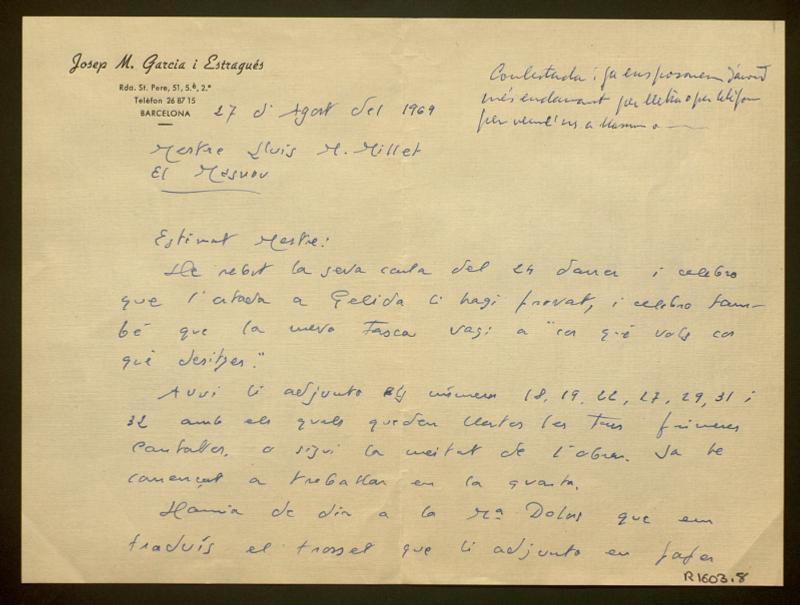 Josep M. Garcia i Estragués
Rda. St. Pere, 51, 5.è, 2.ª
Telèfon 26 87 15
BARCELONA
27 d'Agost del 1969
Contestada i ja ens posarem d'acord
més endavant per lletra o per telèfon
per veure'ns a
Mestre Lluis M. Millet
El Masnou
Estimat Mestre:
He rebut la seva carta del 24 darrer i celebro
que l'estada a Gelida li hagi provat, i celebro tam-
bé que la meva tasca vagi a "cor què vols cor
què desitges."
Avui li adjunto els números 18, 19, 22, 27, 29, 31 i
32 amb els quals queden llestes les tres primeres
Cantates, o sigui la meitat de l'obra. Ja he
començat a treballar en la quarta.
Hauria de dir a la Mª Dolors que em
traduís el trosset que li adjunto en paper
R1603.8